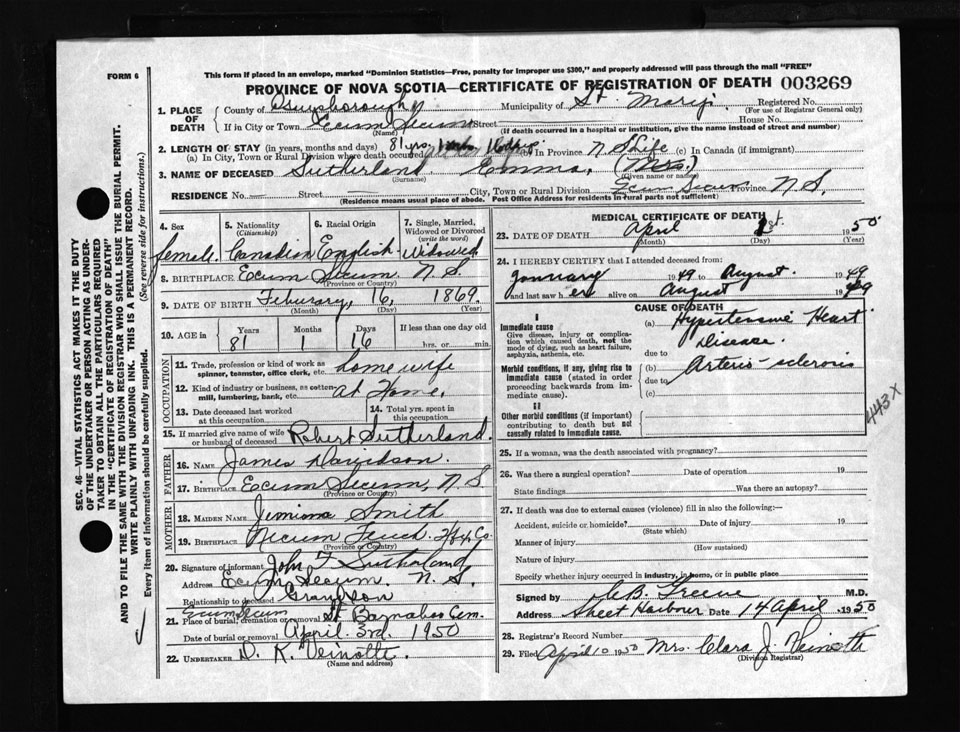 FORM 6
This form if placed in an envelope, marked "Dominion Statistics—Free, penalty for improper use $300," and properly addressed will pass through the mail "FREE"
PROVINCE OF NOVA SCOTIA—CERTIFICATE OF REGISTRATION OF DEATH 003269
1. PLACE OF DEATH County of Guysborough Municipality of St Marys Registered No.
(For use of Registrar General only)
If in City or Town Ecum Secum Street House No.
(Name) (If death occurred in a hospital or institution, give the name instead of street and number)
2. LENGTH OF STAY (in years, months and days)
(a) In City, Town or Rural Division where death occurred 81 yrs. (b) In Province N S Life (c) In Canada (if immigrant)
3. NAME OF DECEASED Sutherland Emma, (Mrs)
(Surname) (Given name or names)
RESIDENCE No. — Street — City, Town or Rural Division Ecum Secum Province N S.
(Residence means usual place of abode. Post Office Address for residents in rural parts not sufficient)
4. Sex female
5. Nationality (Citizenship) Canadian
6. Racial Origin English
7. Single, Married, Widowed or Divorced (write the word) Widowed
8. BIRTHPLACE Ecum Secum N S.
(Province or Country)
9. DATE OF BIRTH Feburary, 16, 1869.
(Month) (Day) (Year)
10. AGE in Years 81 Months 1 Days 16 If less than one day old hrs. or min.
OCCUPATION
11. Trade, profession or kind of work as spinner, teamster, office clerk, etc. housewife
12. Kind of industry or business, as cotton-mill, lumbering, bank, etc. at Home,
13. Date deceased last worked at this occupation
14. Total yrs. spent in this occupation
15. If married give name of wife or husband of deceased Robert Sutherland.
FATHER
16. NAME James Davidson.
17. BIRTHPLACE Ecum Secum, N S
(Province or Country)
MOTHER
18. MAIDEN NAME Jemima Smith
19. BIRTHPLACE Necum Teuch Hfx. Co.
(Province or Country)
20. Signature of informant John F Sutherland
Address Ecum Secum. N. S.
Relationship to deceased Grandson
21. Place of burial, cremation or removal Ecum Secum St Barnabas Cem.
Date of burial or removal April. 3rd, 1950
22. UNDERTAKER D. K. Veinotte.
(Name and address)
MEDICAL CERTIFICATE OF DEATH
23. DATE OF DEATH April 1st. 1950
(Month) (Day) (Year)
24. I HEREBY CERTIFY that I attended deceased from:
January 1949 to August. 1949
and last saw her alive on August 1949
CAUSE OF DEATH
I
Immediate cause
Give disease, injury or complication which caused death, not the mode of dying, such as heart failure, asphyxia, asthenia, etc.
(a) Hypertensive Heart Disease.
due to
Morbid conditions, if any, giving rise to immediate cause (stated in order proceeding backwards from immediate cause).
(b) Arterio-sclerosis
due to
(c)
II
Other morbid conditions (if important) contributing to death but not causally related to immediate cause.
443X
25. If a woman, was the death associated with pregnancy?
26. Was there a surgical operation? Date of operation 19
State findings Was there an autopsy?
27. If death was due to external causes (violence) fill in also the following:—
Accident, suicide or homicide? Date of injury 19
(State which)
Manner of injury
(How sustained)
Nature of injury
Specify whether injury occurred in industry, in home, or in public place
Signed by C B. Greene M.D.
Address Sheet Harbour Date 14 April 1950
28. Registrar's Record Number
29. Filed April 10 1950 Mrs. Clara J. Veinotte
(Division Registrar)
SEC. 46—VITAL STATISTICS ACT MAKES IT THE DUTY
OF THE UNDERTAKER OR PERSON ACTING AS UNDERTAKER
TO OBTAIN ALL THE PARTICULARS REQUIRED
IN THE "CERTIFICATE OF REGISTRATION OF DEATH"
AND TO FILE THE SAME WITH THE DIVISION REGISTRAR WHO SHALL ISSUE THE BURIAL PERMIT.
WRITE PLAINLY WITH UNFADING INK. THIS IS A PERMANENT RECORD.
Every item of information should be carefully supplied. (See reverse side for instructions.)